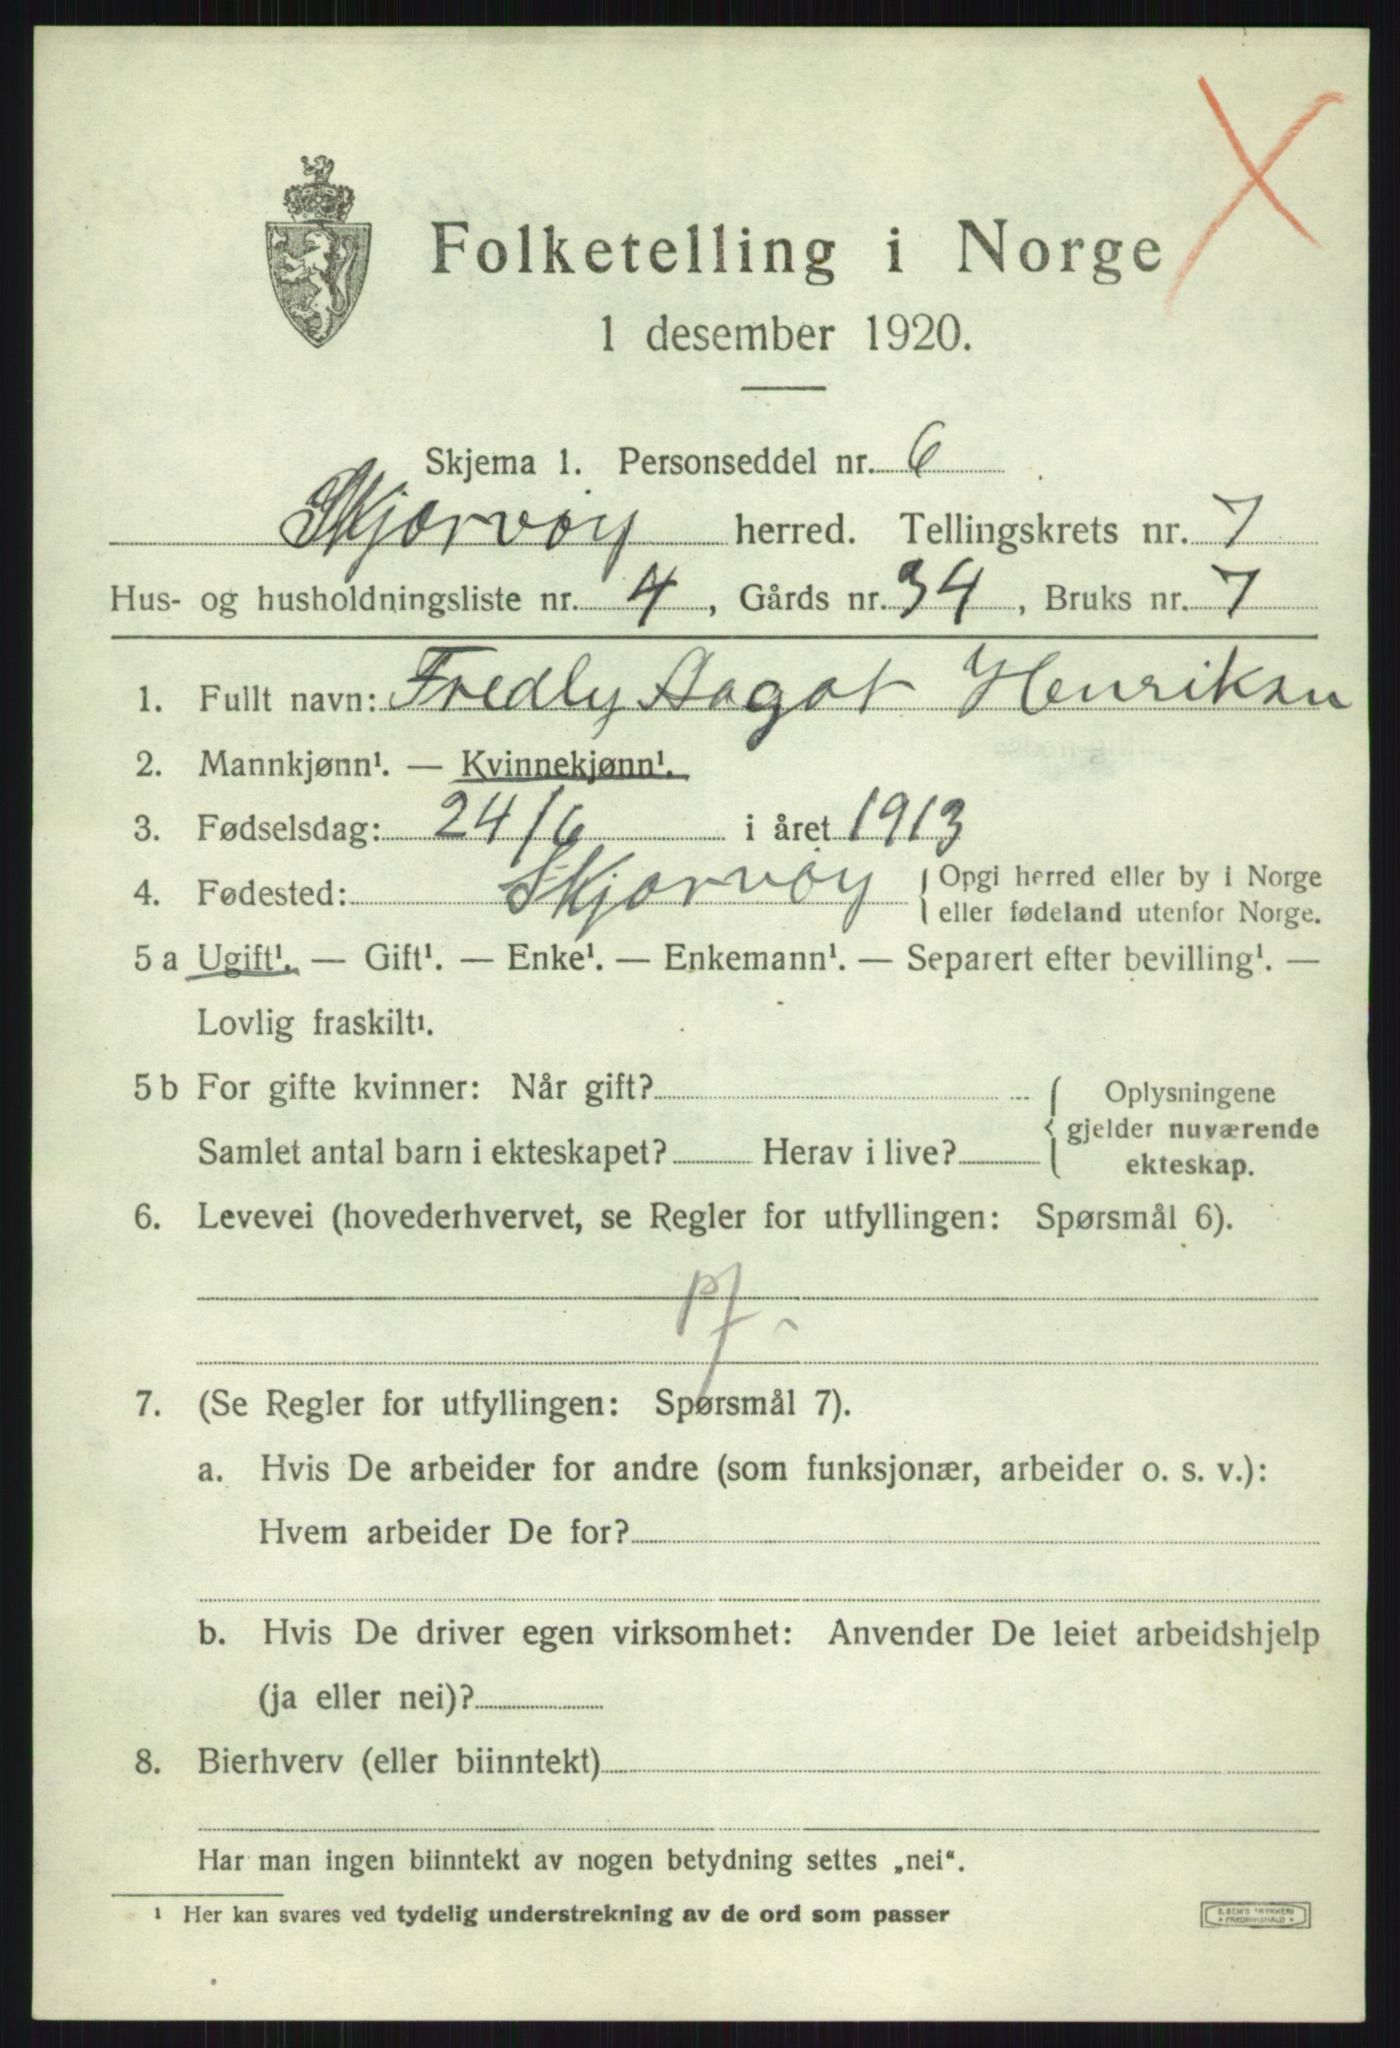 Folketelling i Norge
1 desember 1920.
Skjema 1. Personseddel nr. 6
Skjervøy herred. Tellingskrets nr. 7
Hus- og husholdningsliste nr. 4, Gårds nr. 34, Bruks nr. 7
1. Fullt navn: Fredly Aagot Henriksen
2. Mannkjønn¹. — Kvinnekjønn¹.
3. Fødselsdag: 24/6 i året 1913
4. Fødested: Skjervøy { Opgi herred eller by i Norge
eller fødeland utenfor Norge.
5 a Ugift¹. — Gift¹. — Enke¹. — Enkemann¹. — Separert efter bevilling¹. —
Lovlig fraskilt¹.
5 b For gifte kvinner: Når gift? { Oplysningene
gjelder nuværende
Samlet antal barn i ekteskapet? Herav i live? ekteskap.
6. Levevei (hovederhvervet, se Regler for utfyllingen: Spørsmål 6).
7. (Se Regler for utfyllingen: Spørsmål 7).
a. Hvis De arbeider for andre (som funksjonær, arbeider o. s. v.):
Hvem arbeider De for?
b. Hvis De driver egen virksomhet: Anvender De leiet arbeidshjelp
(ja eller nei)?
8. Bierhverv (eller biinntekt)
Har man ingen biinntekt av nogen betydning settes „nei“.
¹ Her kan svares ved tydelig understrekning av de ord som passer
E. SEM'S TRYKKERI
* FREDRIKSHALD *